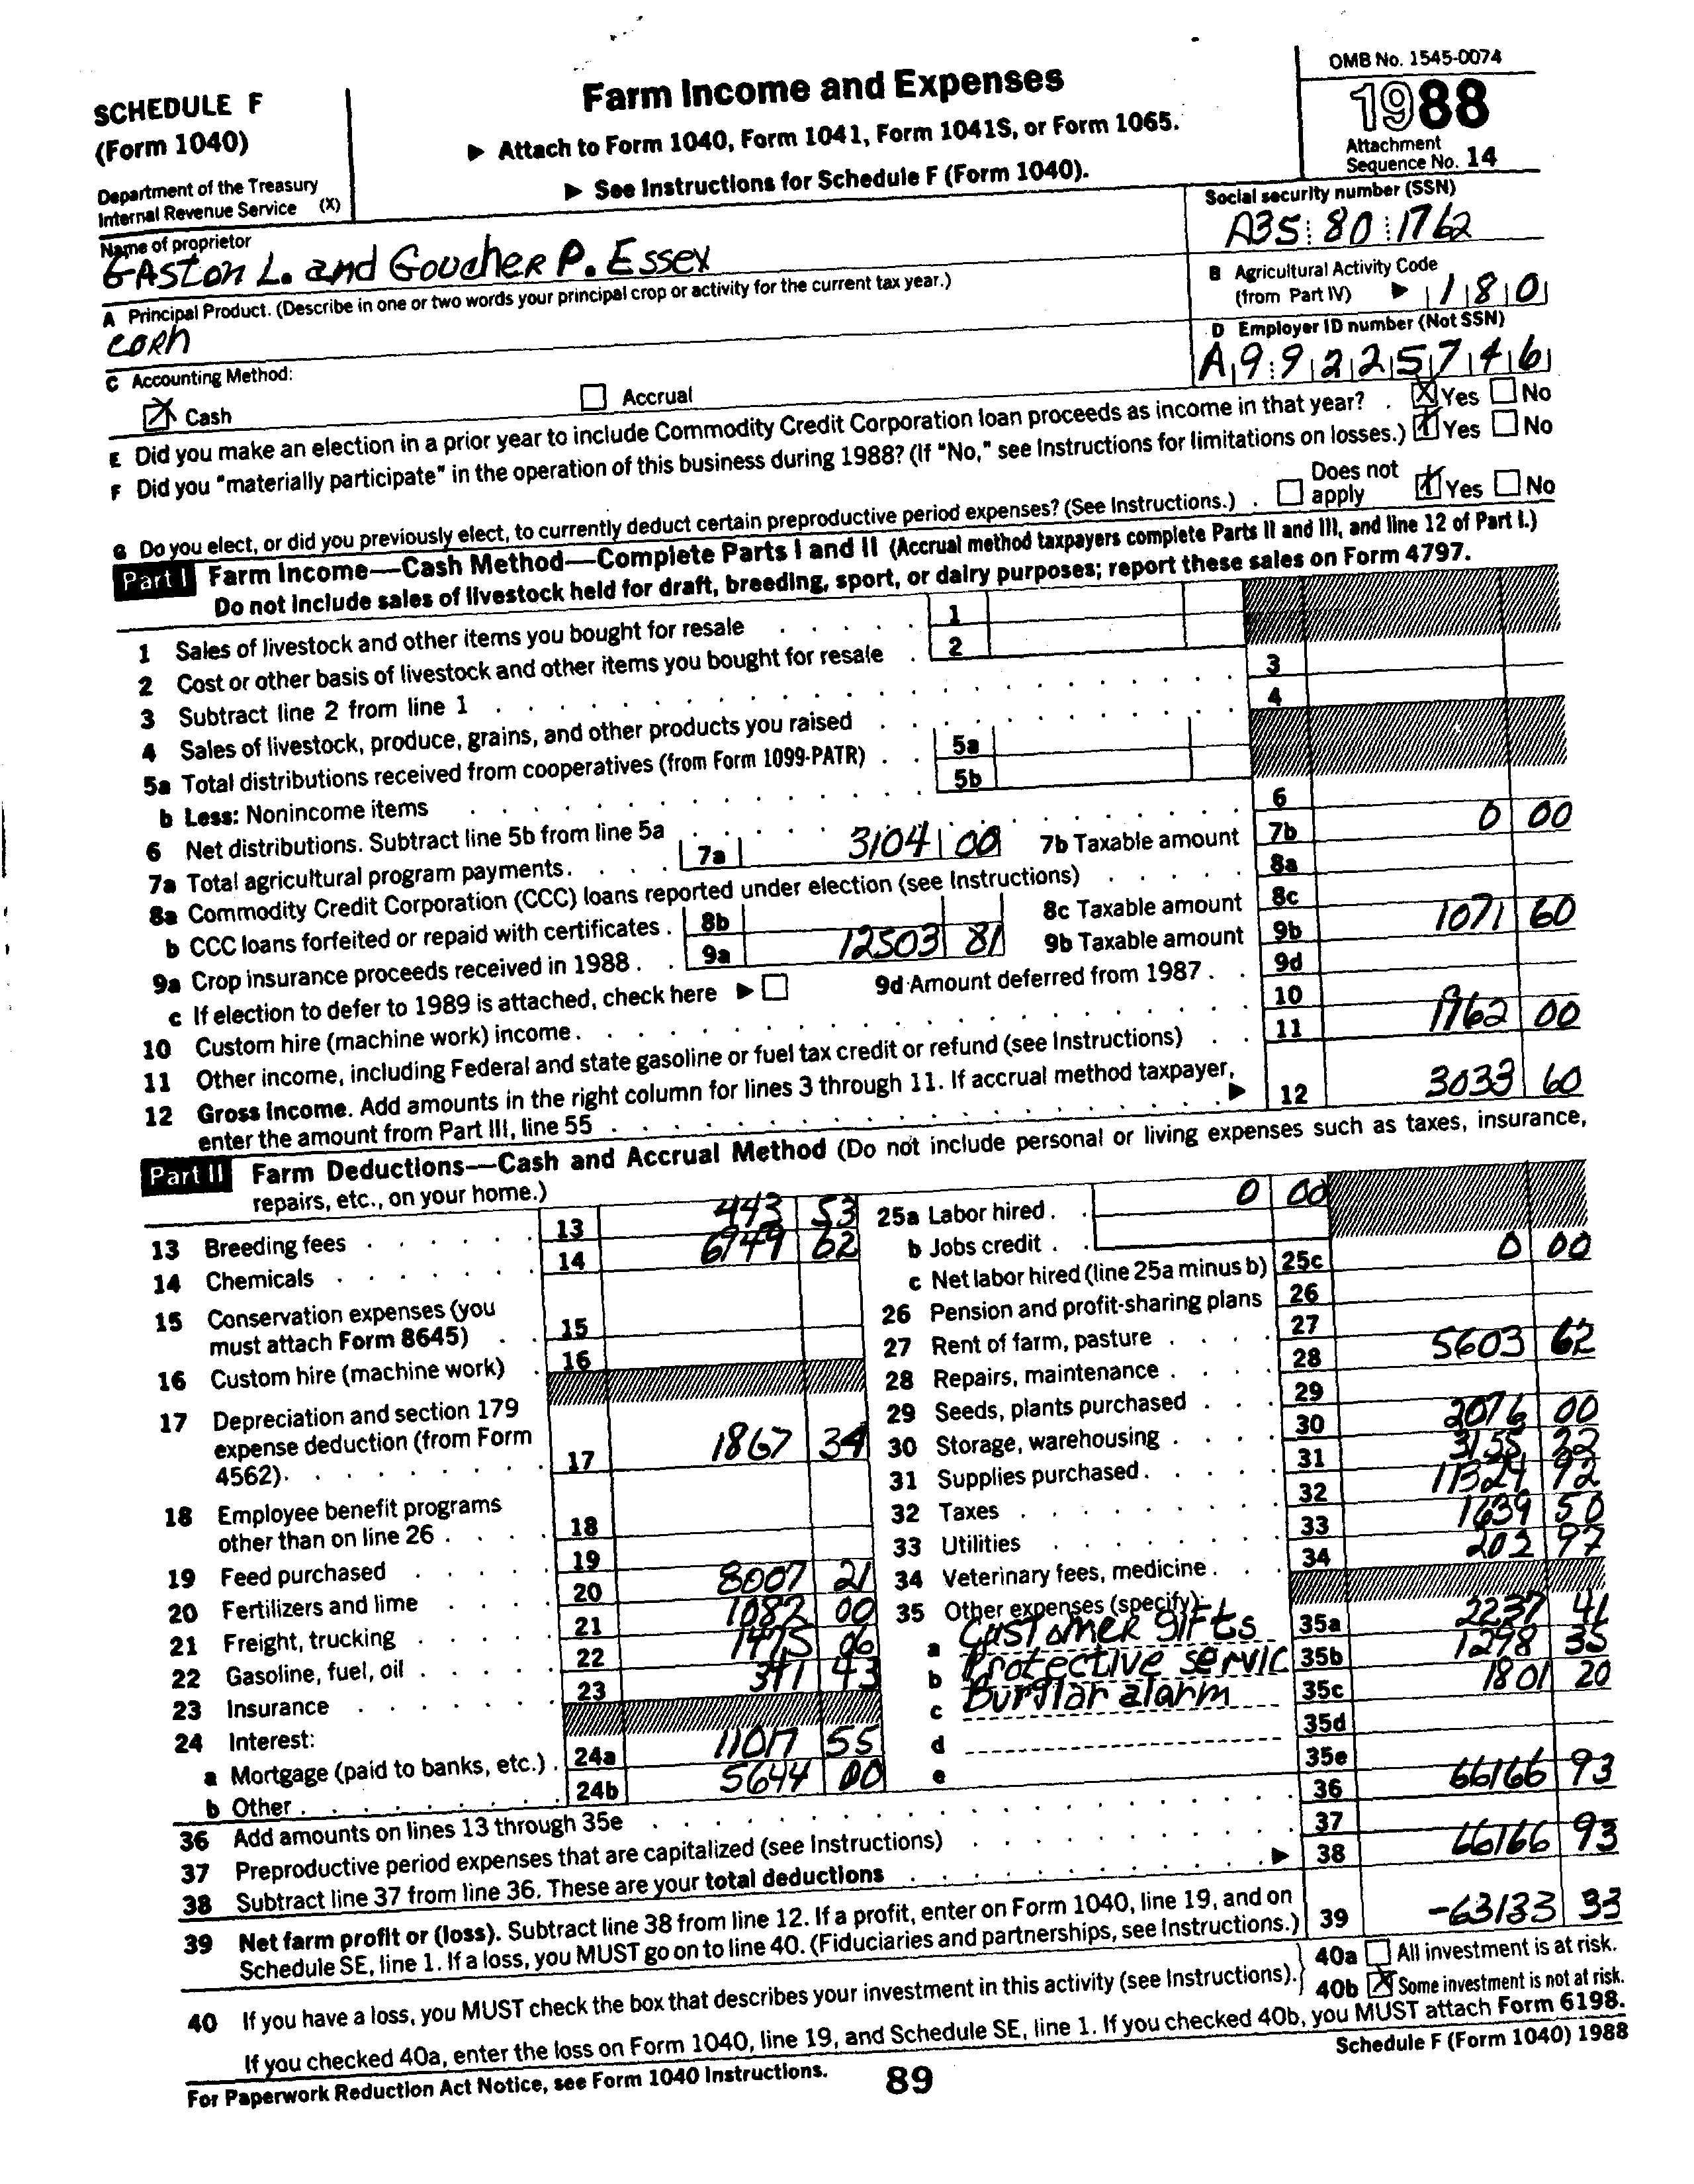 OMB No. 1545-0074
SCHEDULE F
(Form 1040)
Department of the Treasury
Internal Revenue Service (X)
Farm Income and Expenses
▶ Attach to Form 1040, Form 1041, Form 1041S, or Form 1065.
▶ See Instructions for Schedule F (Form 1040).
1988
Attachment
Sequence No. 14
Name of proprietor
GASTON L. and GOUCHER P. ESSEX
Social security number (SSN)
A35 80 1762
A Principal Product. (Describe in one or two words your principal crop or activity for the current tax year.)
CORN
B Agricultural Activity Code
(from Part IV) ▶ 1 8 0
D Employer ID number (Not SSN)
A 9 9 2 2 5 7 4 6
C Accounting Method:
☒ Cash ☐ Accrual
E Did you make an election in a prior year to include Commodity Credit Corporation loan proceeds as income in that year? . ☒ Yes ☐ No
F Did you "materially participate" in the operation of this business during 1988? (If "No," see Instructions for limitations on losses.) ☒ Yes ☐ No
G Do you elect, or did you previously elect, to currently deduct certain preproductive period expenses? (See Instructions.) . ☐ Does not apply ☒ Yes ☐ No
Part I Farm Income—Cash Method—Complete Parts I and II (Accrual method taxpayers complete Parts II and III, and line 12 of Part I.)
Do not include sales of livestock held for draft, breeding, sport, or dairy purposes; report these sales on Form 4797.
1 Sales of livestock and other items you bought for resale 1
2 Cost or other basis of livestock and other items you bought for resale 2
3 Subtract line 2 from line 1 3
4 Sales of livestock, produce, grains, and other products you raised 4
5a Total distributions received from cooperatives (from Form 1099-PATR) 5a
b Less: Nonincome items 5b
6 Net distributions. Subtract line 5b from line 5a 6
7a Total agricultural program payments. 7a 3104 00 7b Taxable amount 7b 0 00
8a Commodity Credit Corporation (CCC) loans reported under election (see Instructions) 8a
b CCC loans forfeited or repaid with certificates . 8b 8c Taxable amount 8c
9a Crop insurance proceeds received in 1988 . 9a 12503 81 9b Taxable amount 9b 1071 60
c If election to defer to 1989 is attached, check here ▶ ☐ 9d Amount deferred from 1987 . 9d
10 Custom hire (machine work) income . 10
11 Other income, including Federal and state gasoline or fuel tax credit or refund (see Instructions) 11 1962 00
12 Gross income. Add amounts in the right column for lines 3 through 11. If accrual method taxpayer,
enter the amount from Part III, line 55 ▶ 12 3033 60
Part II Farm Deductions—Cash and Accrual Method (Do not include personal or living expenses such as taxes, insurance,
repairs, etc., on your home.)
13 Breeding fees 13 443 53
14 Chemicals 14 6749 62
15 Conservation expenses (you
must attach Form 8645) 15
16 Custom hire (machine work) 16
17 Depreciation and section 179
expense deduction (from Form
4562). 17 1867 34
18 Employee benefit programs
other than on line 26 18
19 Feed purchased 19
20 Fertilizers and lime 20 8007 21
21 Freight, trucking 21 1082 00
22 Gasoline, fuel, oil 22 1475 06
23 Insurance 23 391 43
24 Interest:
a Mortgage (paid to banks, etc.) . 24a 11017 55
b Other 24b 5644 00
25a Labor hired 0 00
b Jobs credit
c Net labor hired (line 25a minus b) 25c 0 00
26 Pension and profit-sharing plans 26
27 Rent of farm, pasture 27
28 Repairs, maintenance 28 5603 62
29 Seeds, plants purchased 29
30 Storage, warehousing 30 2076 00
31 Supplies purchased 31 3155 22
32 Taxes 32 11324 92
33 Utilities 33 1639 50
34 Veterinary fees, medicine 34 202 97
35 Other expenses (specify):
a Customer gifts 35a 2237 41
b Protective servic 35b 1298 35
c Burglar alarm 35c 1801 20
d 35d
e 35e
36 Add amounts on lines 13 through 35e 36 66166 93
37 Preproductive period expenses that are capitalized (see Instructions) 37
38 Subtract line 37 from line 36. These are your total deductions ▶ 38 66166 93
39 Net farm profit or (loss). Subtract line 38 from line 12. If a profit, enter on Form 1040, line 19, and on
Schedule SE, line 1. If a loss, you MUST go on to line 40. (Fiduciaries and partnerships, see Instructions.) 39 -63133 33
40 If you have a loss, you MUST check the box that describes your investment in this activity (see Instructions). 40a ☐ All investment is at risk.
40b ☒ Some investment is not at risk.
If you checked 40a, enter the loss on Form 1040, line 19, and Schedule SE, line 1. If you checked 40b, you MUST attach Form 6198.
For Paperwork Reduction Act Notice, see Form 1040 Instructions.
89
Schedule F (Form 1040) 1988